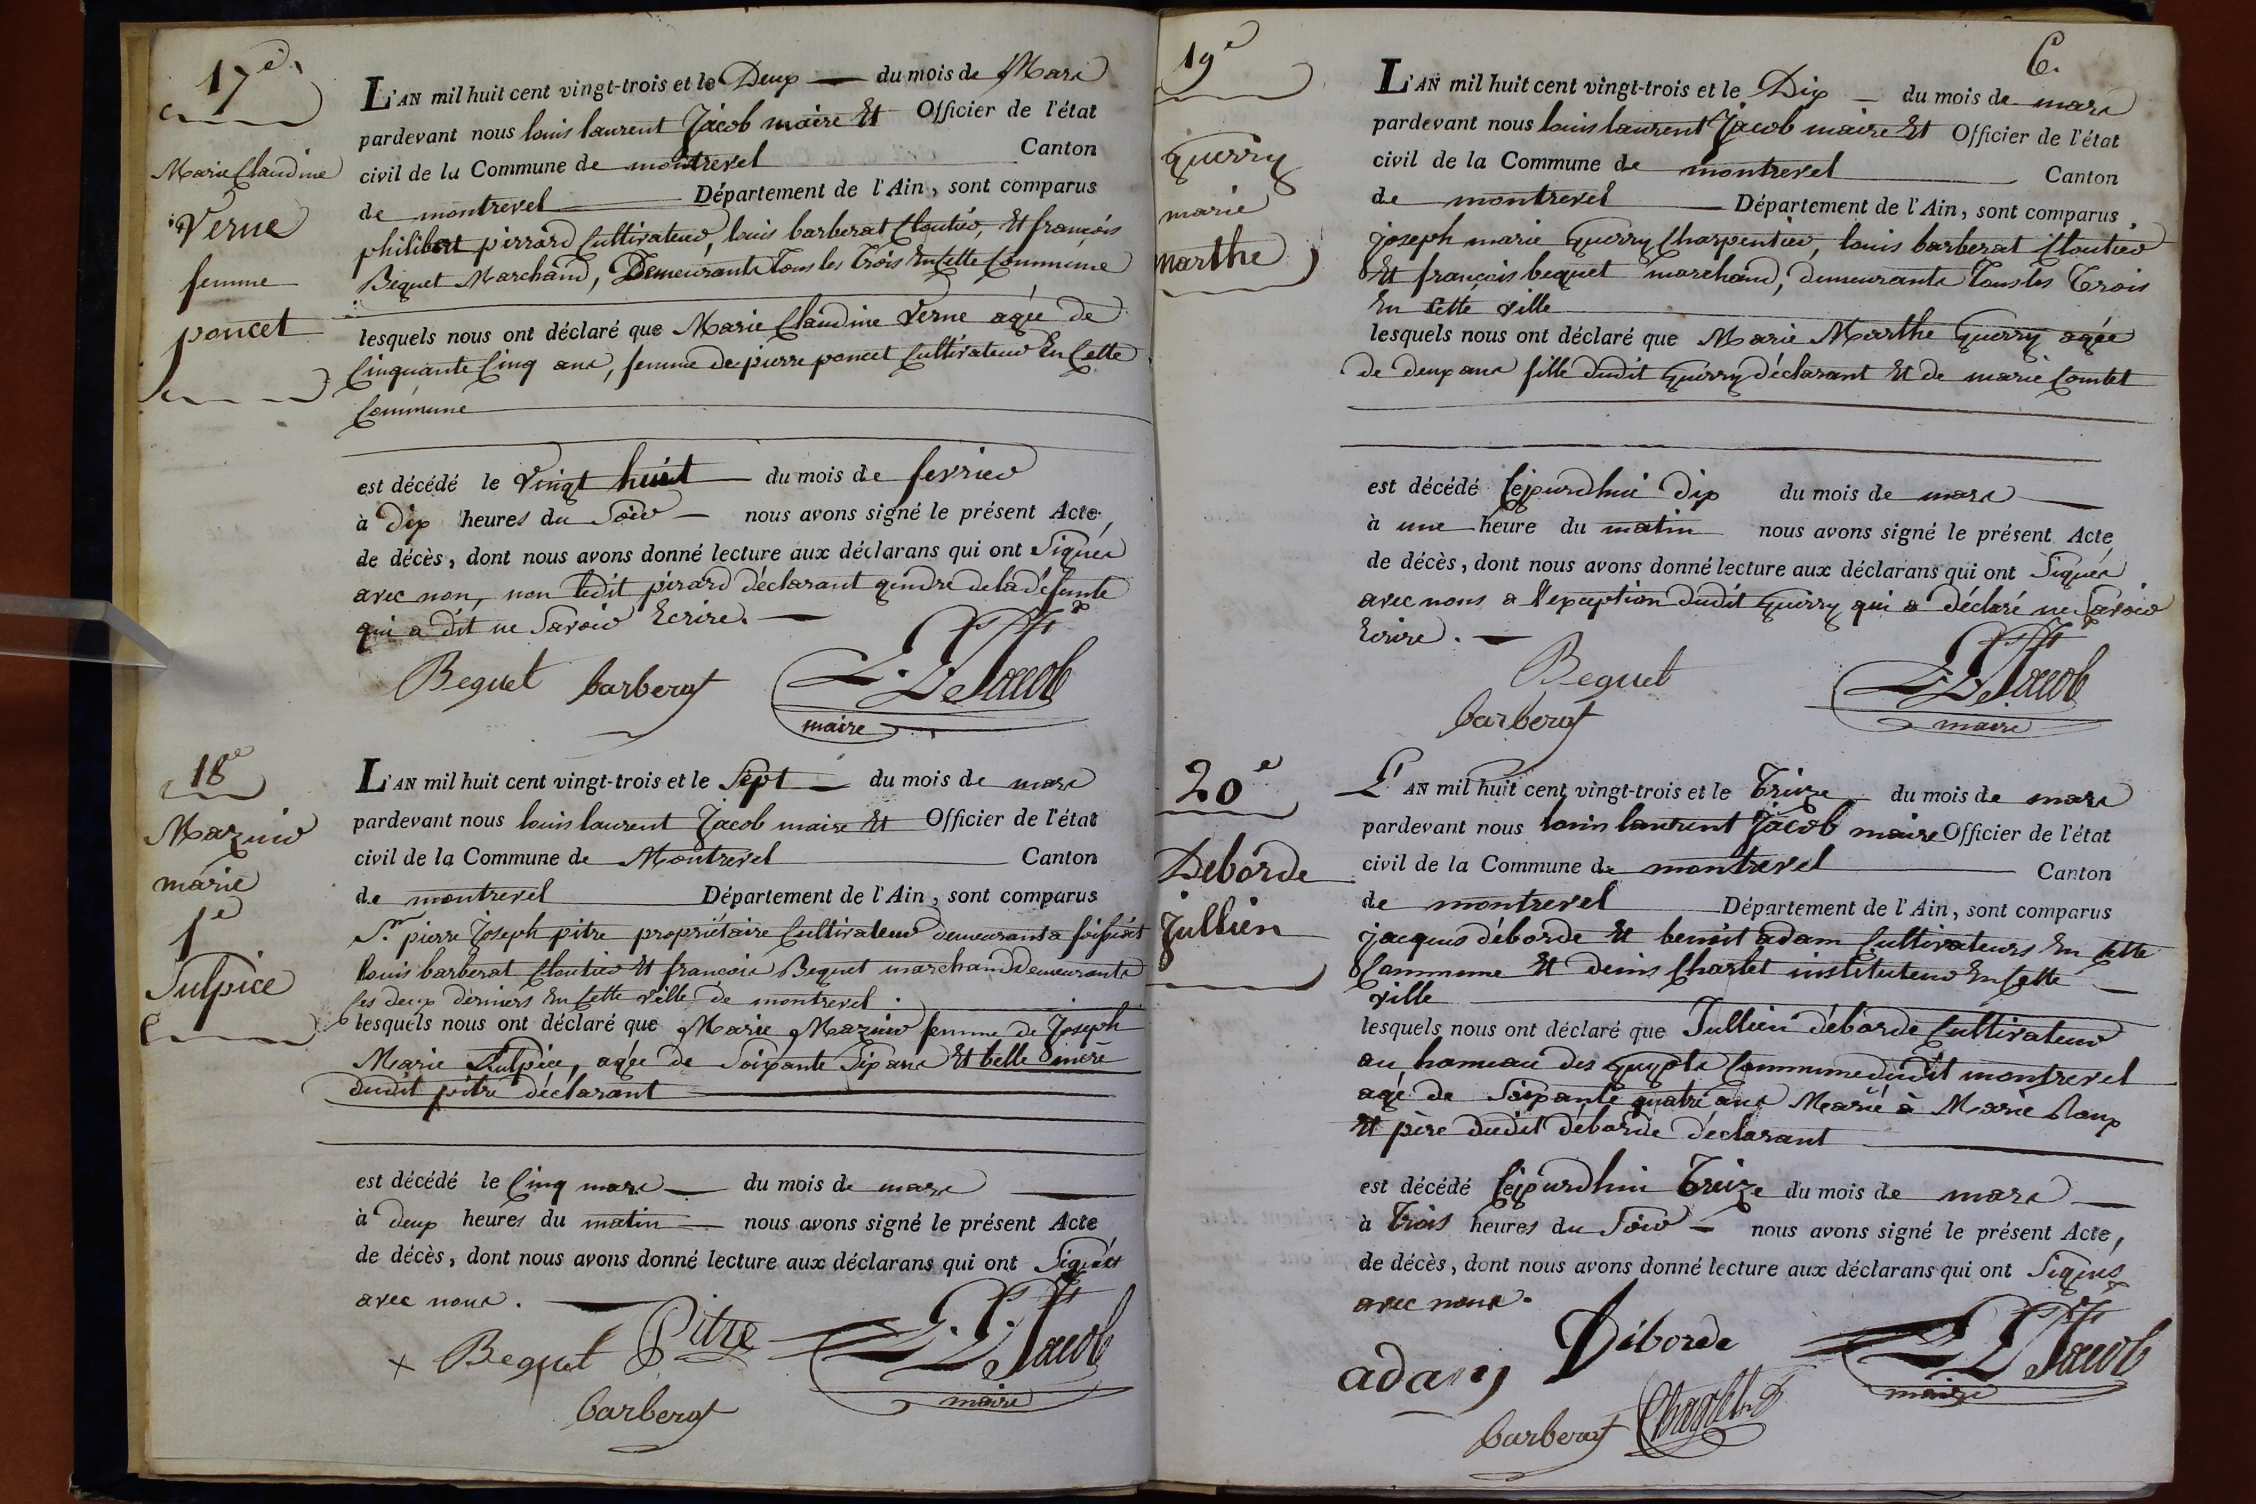 17e
Marie Claudine
Verne
femme
poncet
L'AN mil huit cent vingt-trois et le Deux du mois de Mars
pardevant nous louis laurent Jacob maire Et Officier de l'état
civil de la Commune de montrevel Canton
de montrevel Département de l'Ain, sont comparus
philibert pirrard Cultivateur, louis barberat Cloutier, Et françois
Bequet Marchand, Demeurants Tous les Trois En Cette Commune
lesquels nous ont déclaré que Marie Claudine Verne agée de
Cinquante Cinq ans, femme de pierre poncet Cultivateur En Cette
Commune
est décédé le Vingt huit du mois de fevrier
à Dix heures du Soir nous avons signé le présent Acte
de décès, dont nous avons donné lecture aux déclarans qui ont Signés
avec nou, non ledit pirard déclarant gendre de la défunte
qui a dit ne Savoir Ecrire.
Bequet barberat L. L. Jacob
maire
18e
Mazuir
marie
fe
Sulpice
L'AN mil huit cent vingt-trois et le Sept du mois de mars
pardevant nous louis laurent Jacob maire Et Officier de l'état
civil de la Commune de Montrevel Canton
de montrevel Département de l'Ain, sont comparus
Sr. pierre Joseph pitre propriétaire Cultivateur demeurant a foissiat
louis barberat Cloutier Et francois Bequet marchand Demeurants
les deux derniers En Cette ville de montrevel.
lesquels nous ont déclaré que Marie Mazuir femme de Joseph
Marie Sulpice, agée de Soixante Six ans Et belle mere
dudit pitre déclarant
est décédé le Cinq mars du mois de mars
à deux heures du matin nous avons signé le présent Acte
de décès, dont nous avons donné lecture aux déclarans qui ont Signés
avec nous.
x Bequet Pitre L. L. Jacob
barberat maire
19e
Guerry
marie
marthe
6.
L'AN mil huit cent vingt-trois et le Dix du mois de mars
pardevant nous louis laurent Jacob maire Et Officier de l'état
civil de la Commune de montrevel Canton
de montrevel Département de l'Ain, sont comparus
joseph marie Guerry Charpentier, louis barberat Cloutier
Et françois bequet marchand, demeurants Tous les Trois
En Cette ville
lesquels nous ont déclaré que Marie Marthe Guerry agée
de deux ans fille dudit Guerry déclarant Et de marie Comtet
est décédé Cejourdhui dix du mois de mars
à une heure du matin nous avons signé le présent Acte
de décès, dont nous avons donné lecture aux déclarans qui ont Signés
avec nous a l'exception dudit Guerry qui a déclaré ne Savoir
Ecrire.
Bequet L. L. Jacob
barberat maire
20e
Deborde
Jullien
L'AN mil huit cent vingt-trois et le Treize du mois de mars
pardevant nous louis laurent Jacob maire Officier de l'état
civil de la Commune de montrevel Canton
de montrevel Département de l'Ain, sont comparus
jacques déborde Et benoit adam Cultivateurs En Cette
Commune Et denis Charlet instituteur En Cette
ville
lesquels nous ont déclaré que Jullien déborde Cultivateur
au hameau des Commune dudit montrevel
agé de Soixante quatre ans Marié à Marie
Et père dudit déborde déclarant
est décédé Cejourdhui Treize du mois de mars
à Trois heures du Soir nous avons signé le présent Acte,
de décès, dont nous avons donné lecture aux déclarans qui ont Signés
avec nous.
adam Déborde L. L. Jacob
barberat maire